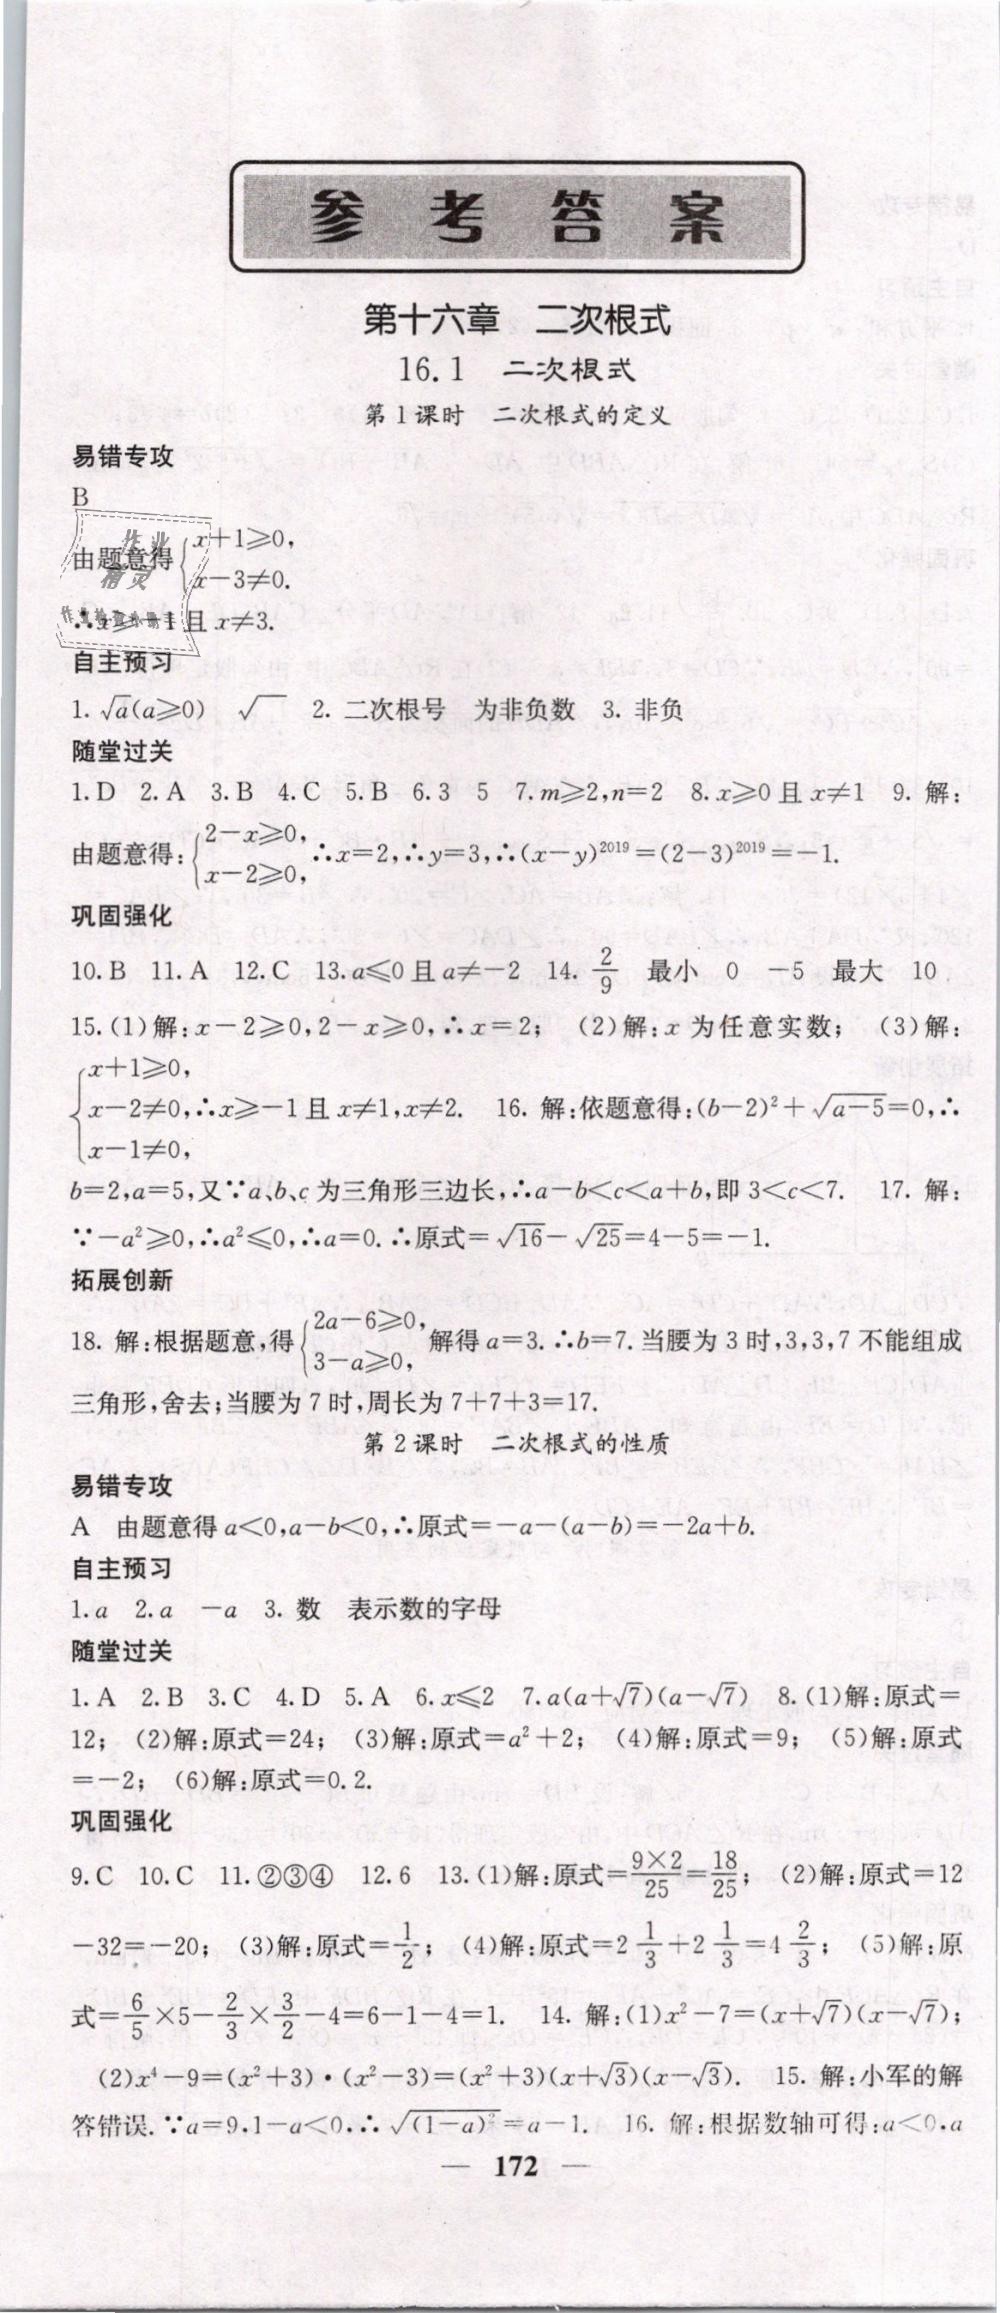 参考答案
第十六章 二次根式
16.1 二次根式
第1课时 二次根式的定义
易错专攻
B
由题意得{x+1≥0,
x-3≠0.
∴x≥-1且x≠3.
作业
精灵
作业检查小帮手
自主预习
1. √a(a≥0) √ 2. 二次根号 为非负数 3. 非负
随堂过关
1.D 2.A 3.B 4.C 5.B 6.3 5 7.m≥2,n=2 8.x≥0且x≠1 9. 解:
由题意得:{2-x≥0, x-2≥0, ∴x=2,∴y=3,∴(x-y)²⁰¹⁹=(2-3)²⁰¹⁹=-1.
巩固强化
10.B 11.A 12.C 13.a≤0且a≠-2 14. 2/9 最小 0 -5 最大 10
15.(1)解:x-2≥0,2-x≥0,∴x=2; (2)解:x为任意实数; (3)解:
{x+1≥0,
x-2≠0,∴x≥-1且x≠1,x≠2. 16. 解:依题意得:(b-2)²+√(a-5)=0,∴
x-1≠0,
b=2,a=5,又∵a、b、c为三角形三边长,∴a-b<c<a+b,即3<c<7. 17. 解:
∵-a²≥0,∴a²≤0,∴a=0.∴原式=√16-√25=4-5=-1.
拓展创新
18. 解:根据题意,得{2a-6≥0, 3-a≥0, 解得a=3.∴b=7.当腰为3时,3,3,7不能组成
三角形,舍去;当腰为7时,周长为7+7+3=17.
第2课时 二次根式的性质
易错专攻
A 由题意得a<0,a-b<0,∴原式=-a-(a-b)=-2a+b.
自主预习
1.a 2.a -a 3. 数 表示数的字母
随堂过关
1.A 2.B 3.C 4.D 5.A 6.x≤2 7.a(a+√7)(a-√7) 8.(1)解:原式=
12; (2)解:原式=24; (3)解:原式=a²+2; (4)解:原式=9; (5)解:原式
=-2; (6)解:原式=0.2.
巩固强化
9.C 10.C 11.②③④ 12.6 13.(1)解:原式=9×2/25=18/25; (2)解:原式=12
-32=-20; (3)解:原式=1/2; (4)解:原式=2 1/3+2 1/3=4 2/3; (5)解:原
式=6/5×5-2/3×3/2-4=6-1-4=1. 14. 解:(1)x²-7=(x+√7)(x-√7);
(2)x⁴-9=(x²+3)·(x²-3)=(x²+3)(x+√3)(x-√3). 15. 解:小军的解
答错误.∵a=9,1-a<0,∴√(1-a)²=a-1. 16. 解:根据数轴可得:a<0,a
— 172 —